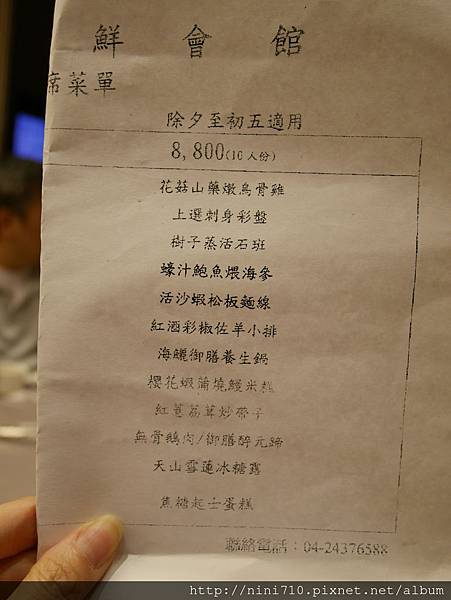 鮮會館
席菜單
除夕至初五適用
8,800(10人份)
花菇山藥燉烏骨雞
上選刺身彩盤
樹子蒸活石班
蠔汁鮑魚煨海參
活沙蝦松板麵線
紅酒彩椒佐羊小排
海鱺御膳養生鍋
櫻花蝦蒲燒鰻米糕
紅蔥荔茸炒帶子
無骨鵝肉/御膳醉元蹄
天山雪蓮冰糖露
焦糖起士蛋糕
聯絡電話：04-24376588
http://nini710.pixnet.net/album